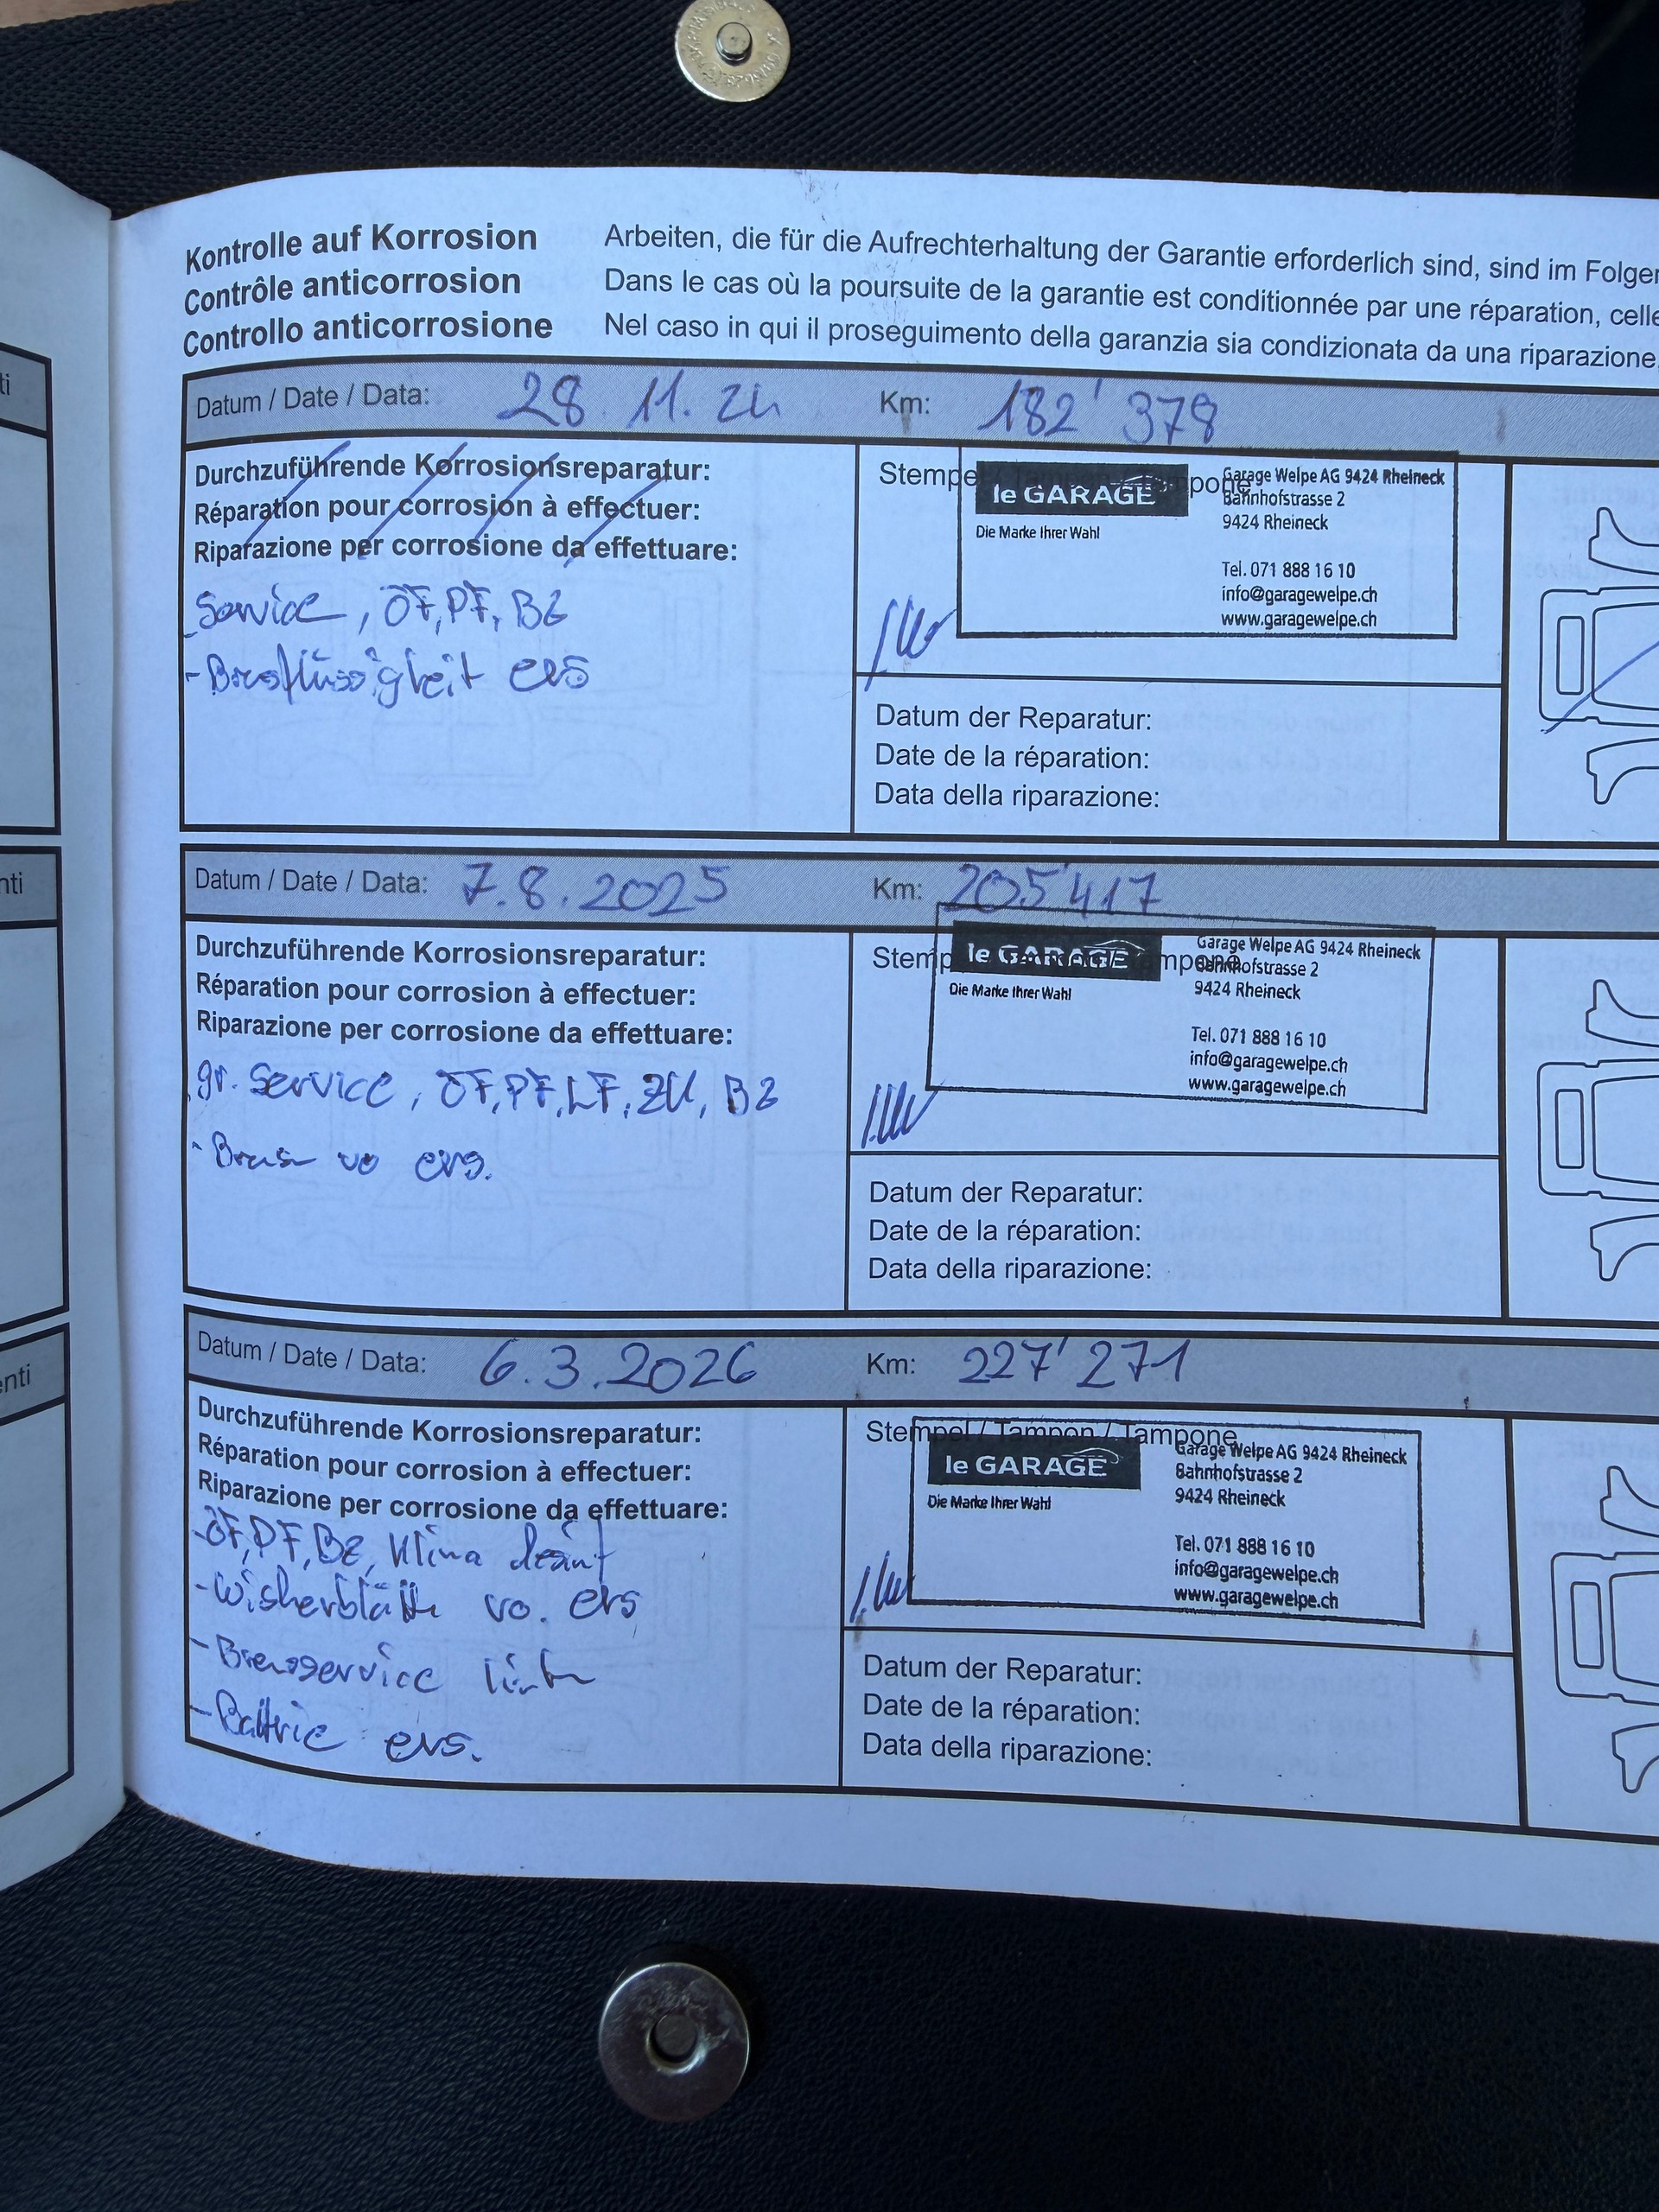 Kontrolle auf Korrosion
Contrôle anticorrosion
Controllo anticorrosione
Arbeiten, die für die Aufrechterhaltung der Garantie erforderlich sind, sind im Folgen
Dans le cas où la poursuite de la garantie est conditionnée par une réparation, celle
Nel caso in qui il proseguimento della garanzia sia condizionata da una riparazione,
Datum / Date / Data: 28. 11. 24 Km: 182'378
Durchzuführende Korrosionsreparatur:
Réparation pour corrosion à effectuer:
Riparazione per corrosione da effettuare:
Service, ÖF, PF, BZ
- Bremsflüssigkeit ers
le GARAGE
Die Marke Ihrer Wahl
Garage Welpe AG 9424 Rheineck
Bahnhofstrasse 2
9424 Rheineck
Tel. 071 888 16 10
info@garagewelpe.ch
www.garagewelpe.ch
Datum der Reparatur:
Date de la réparation:
Data della riparazione:
Datum / Date / Data: 7.8.2025 Km: 205'417
Durchzuführende Korrosionsreparatur:
Réparation pour corrosion à effectuer:
Riparazione per corrosione da effettuare:
gr. Service, ÖF, PF, LF, ZK, BZ
- vo ers.
le GARAGE
Die Marke Ihrer Wahl
Garage Welpe AG 9424 Rheineck
Bahnhofstrasse 2
9424 Rheineck
Tel. 071 888 16 10
info@garagewelpe.ch
www.garagewelpe.ch
Datum der Reparatur:
Date de la réparation:
Data della riparazione:
Datum / Date / Data: 6.3.2026 Km: 227'271
Durchzuführende Korrosionsreparatur:
Réparation pour corrosion à effectuer:
Riparazione per corrosione da effettuare:
- ÖF, PF, BZ, Klima
- Wisherblätter vo. ers
- Bremsservice
- Battrie ers.
Stempel / Tampon / Tampone
le GARAGE
Die Marke Ihrer Wahl
Garage Welpe AG 9424 Rheineck
Bahnhofstrasse 2
9424 Rheineck
Tel. 071 888 16 10
info@garagewelpe.ch
www.garagewelpe.ch
Datum der Reparatur:
Date de la réparation:
Data della riparazione: